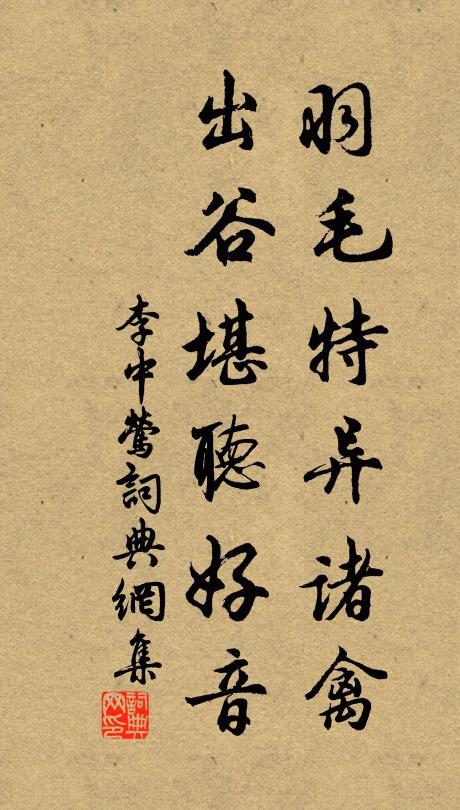 羽毛特异諸禽
出谷堪聽好音
李中鶯詞典網集
詞典网印